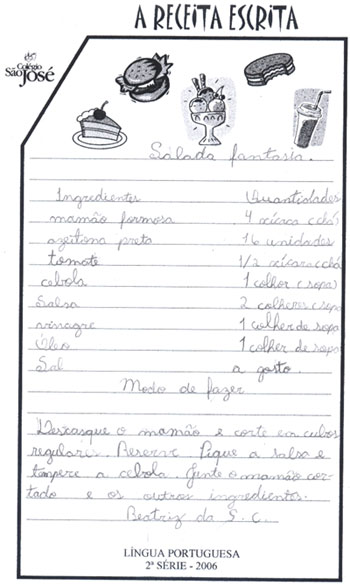 A RECEITA ESCRITA
Colégio
São José
Salada fantasia.
Ingredientes Quantidades
mamão formosa 4 xícara (chá)
azeitona preta 16 unidades
tomate 1/2 xícara (chá
cebola 1 colher (sopa)
Salsa 2 colheres (sopa
vinagre 1 colher de sopa
Óleo 1 colher de sopa
Sal a gosto.
Modo de fazer
Descasque o mamão e corte em cubos
regulares. Reserve Pique a salsa e
tempere a cebola. Junte o mamão cor-
tado e os outros ingredientes.
Beatriz da S. C.
LÍNGUA PORTUGUESA
2ª SÉRIE - 2006